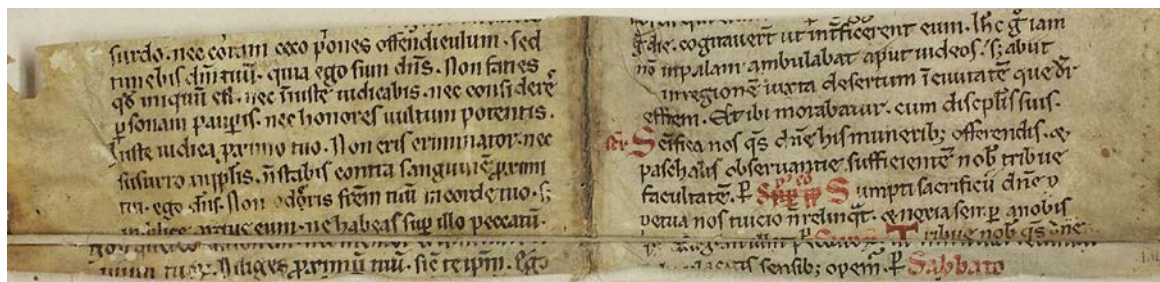 surdo. nec coram ceco p̄ones offendiculum. sed
timebis dn̄m tuū. quia ego sum dn̄s. Non facies
qđ iniquū est. nec iniuste iudicabis. nec considereˢ
ꝑsonam pauꝑis. nec honores uultum potentis.
iuste iudica ꝓximo tuo. Non eris criminator. nec
susurro in ppl̄is. n̄ stabis contra sanguinē ꝓximi
tui. ego dn̄s. Non oderis frēm tuū in corde tuo. s;
argue eum. ne habeas suꝑ illo peccatū.
tuor. Diliges ꝓximū tuū. sic̄ te ip̄m. Ego
die. cogitauer̄t ut int̄ficerent eum. ih̄c g̊ iam
nō in palam ambulabat aput iudeos. s; abiit
in regionē iuxta desertum ī ciuitatē que dr̄
effrem. Et ibi morabatur. cum discipl̄is suis.
Scīfica nos q̄s dn̄e his muneriƀ; offerendis. &
paschalis obseruantie sufficientē noƀ tribue
facultatē. ꝑ Sumpti sacrificii dn̄e ꝑ
petua nos tuicio n̄ relinq̄t. & noxia semꝑ a nobis
Tribue noƀ q̄s dn̄e
sensiƀ; opem. ꝑ Sabbato